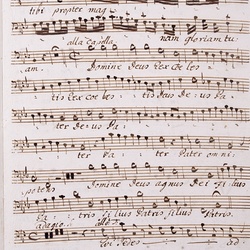 tibi propter mag
alla capella nam gloriam tu
am. Domine Deus rex coe les
tis rex coe les tis Deus De us Pa
ter De us Pa
ter Pa ter Pater omni
potens Domine Deus agnus Dei Fi lius
Pa tris Filius Patris, filius Patris.
adagio